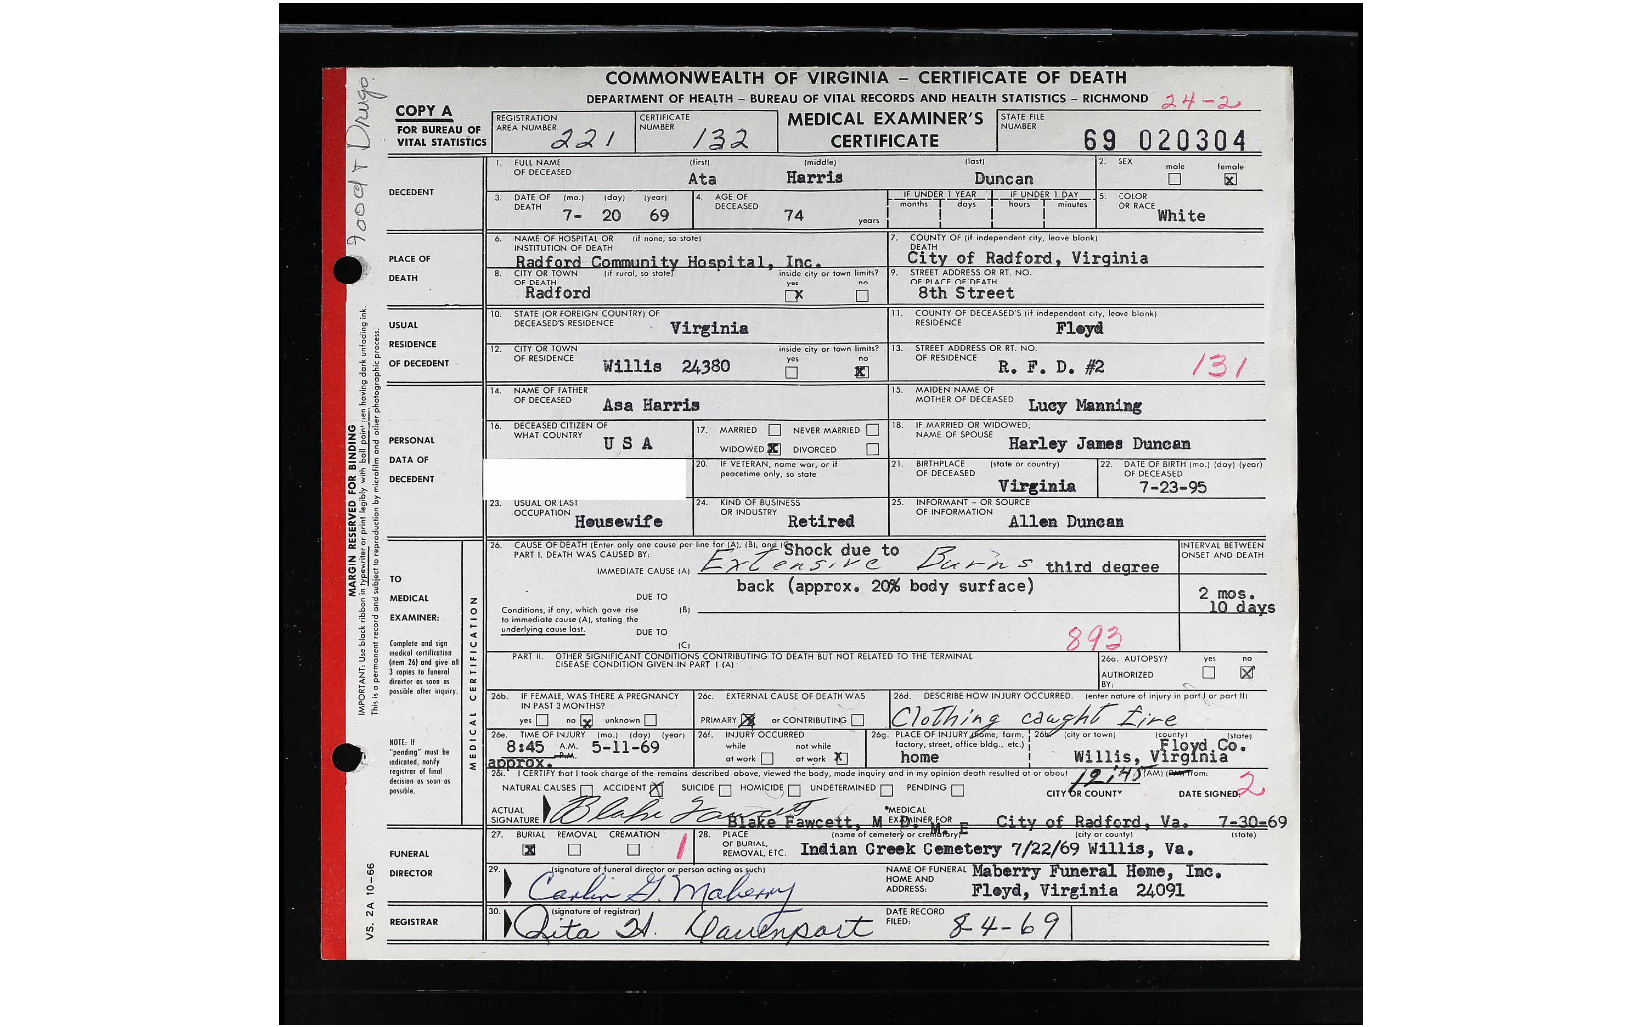 COMMONWEALTH OF VIRGINIA – CERTIFICATE OF DEATH
DEPARTMENT OF HEALTH – BUREAU OF VITAL RECORDS AND HEALTH STATISTICS – RICHMOND 24-2
COPY A
FOR BUREAU OF VITAL STATISTICS
REGISTRATION AREA NUMBER 221
CERTIFICATE NUMBER 132
MEDICAL EXAMINER'S CERTIFICATE
STATE FILE NUMBER 69 020304
DECEDENT
1. FULL NAME OF DECEASED (first) (middle) (last)
Ata Harris Duncan
2. SEX male female X
3. DATE OF DEATH (mo.) (day) (year)
7- 20 69
4. AGE OF DECEASED 74 years
IF UNDER 1 YEAR months days
IF UNDER 1 DAY hours minutes
5. COLOR OR RACE White
PLACE OF DEATH
6. NAME OF HOSPITAL OR INSTITUTION OF DEATH (if none, so state)
Radford Community Hospital, Inc.
7. COUNTY OF DEATH (if independent city, leave blank)
City of Radford, Virginia
8. CITY OR TOWN OF DEATH (if rural, so state) inside city or town limits? yes X no
Radford
9. STREET ADDRESS OR RT. NO. OF PLACE OF DEATH
8th Street
USUAL RESIDENCE OF DECEDENT
10. STATE (OR FOREIGN COUNTRY) OF DECEASED'S RESIDENCE Virginia
11. COUNTY OF DECEASED'S RESIDENCE (if independent city, leave blank)
Floyd
12. CITY OR TOWN OF RESIDENCE inside city or town limits? yes no X
Willis 24380
13. STREET ADDRESS OR RT. NO. OF RESIDENCE
R. F. D. #2 131
PERSONAL DATA OF DECEDENT
14. NAME OF FATHER OF DECEASED Asa Harris
15. MAIDEN NAME OF MOTHER OF DECEASED Lucy Manning
16. DECEASED CITIZEN OF WHAT COUNTRY U S A
17. MARRIED NEVER MARRIED
WIDOWED X DIVORCED
18. IF MARRIED OR WIDOWED, NAME OF SPOUSE Harley James Duncan
20. IF VETERAN, name war, or if peacetime only, so state
21. BIRTHPLACE OF DECEASED (state or country) Virginia
22. DATE OF BIRTH OF DECEASED (mo.) (day) (year) 7-23-95
23. USUAL OR LAST OCCUPATION Housewife
24. KIND OF BUSINESS OR INDUSTRY Retired
25. INFORMANT – OR SOURCE OF INFORMATION Allen Duncan
TO MEDICAL EXAMINER:
Complete and sign medical certification (item 26) and give all 3 copies to funeral director as soon as possible after inquiry.
NOTE: If "pending" must be indicated, notify registrar of final decision as soon as possible.
MEDICAL CERTIFICATION
26. CAUSE OF DEATH (Enter only one cause per line for (A), (B), and (C)
PART I. DEATH WAS CAUSED BY:
IMMEDIATE CAUSE (A) Shock due to Extensive Burns third degree
back (approx. 20% body surface)
INTERVAL BETWEEN ONSET AND DEATH
2 mos. 10 days
DUE TO
(B)
Conditions, if any, which gave rise to immediate cause (A), stating the underlying cause last.
DUE TO
(C)
893
PART II. OTHER SIGNIFICANT CONDITIONS CONTRIBUTING TO DEATH BUT NOT RELATED TO THE TERMINAL DISEASE CONDITION GIVEN IN PART I (A)
26a. AUTOPSY? yes no X
AUTHORIZED BY:
26b. IF FEMALE, WAS THERE A PREGNANCY IN PAST 3 MONTHS?
yes no X unknown
26c. EXTERNAL CAUSE OF DEATH WAS
PRIMARY X or CONTRIBUTING
26d. DESCRIBE HOW INJURY OCCURRED. (enter nature of injury in part I or part II)
Clothing caught fire
26e. TIME OF INJURY (mo.) (day) (year)
8:45 A.M. P.M. 5-11-69
approx.
26f. INJURY OCCURRED
while at work not while at work X
26g. PLACE OF INJURY (home, farm, factory, street, office bldg., etc.)
home
26h. (city or town) (county) (state)
Floyd Co.
Willis, Virginia
26i. I CERTIFY that I took charge of the remains described above, viewed the body, made inquiry and in my opinion death resulted at or about 12:45 (AM) (PM) from:
NATURAL CAUSES ACCIDENT X SUICIDE HOMICIDE UNDETERMINED PENDING
CITY OR COUNTY DATE SIGNED: 2
ACTUAL SIGNATURE Blake Fawcett
MEDICAL EXAMINER FOR
Blake Fawcett, M D. M. E City of Radford, Va. 7-30-69
FUNERAL DIRECTOR
27. BURIAL X REMOVAL CREMATION 1
28. PLACE OF BURIAL, REMOVAL, ETC. (name of cemetery or crematory) (city or county) (state)
Indian Creek Cemetery 7/22/69 Willis, Va.
29. (signature of funeral director or person acting as such)
Carlin G. Maberry
NAME OF FUNERAL HOME AND ADDRESS: Maberry Funeral Home, Inc.
Floyd, Virginia 24091
REGISTRAR
30. (signature of registrar)
Rita H. Davenport
DATE RECORD FILED: 8-4-69
MARGIN RESERVED FOR BINDING
IMPORTANT: Use black ribbon in typewriter or print legibly with ball point pen having dark unfading ink.
This is a permanent record and subject to reproduction by microfilm and other photographic process.
VS. 2A 10–66